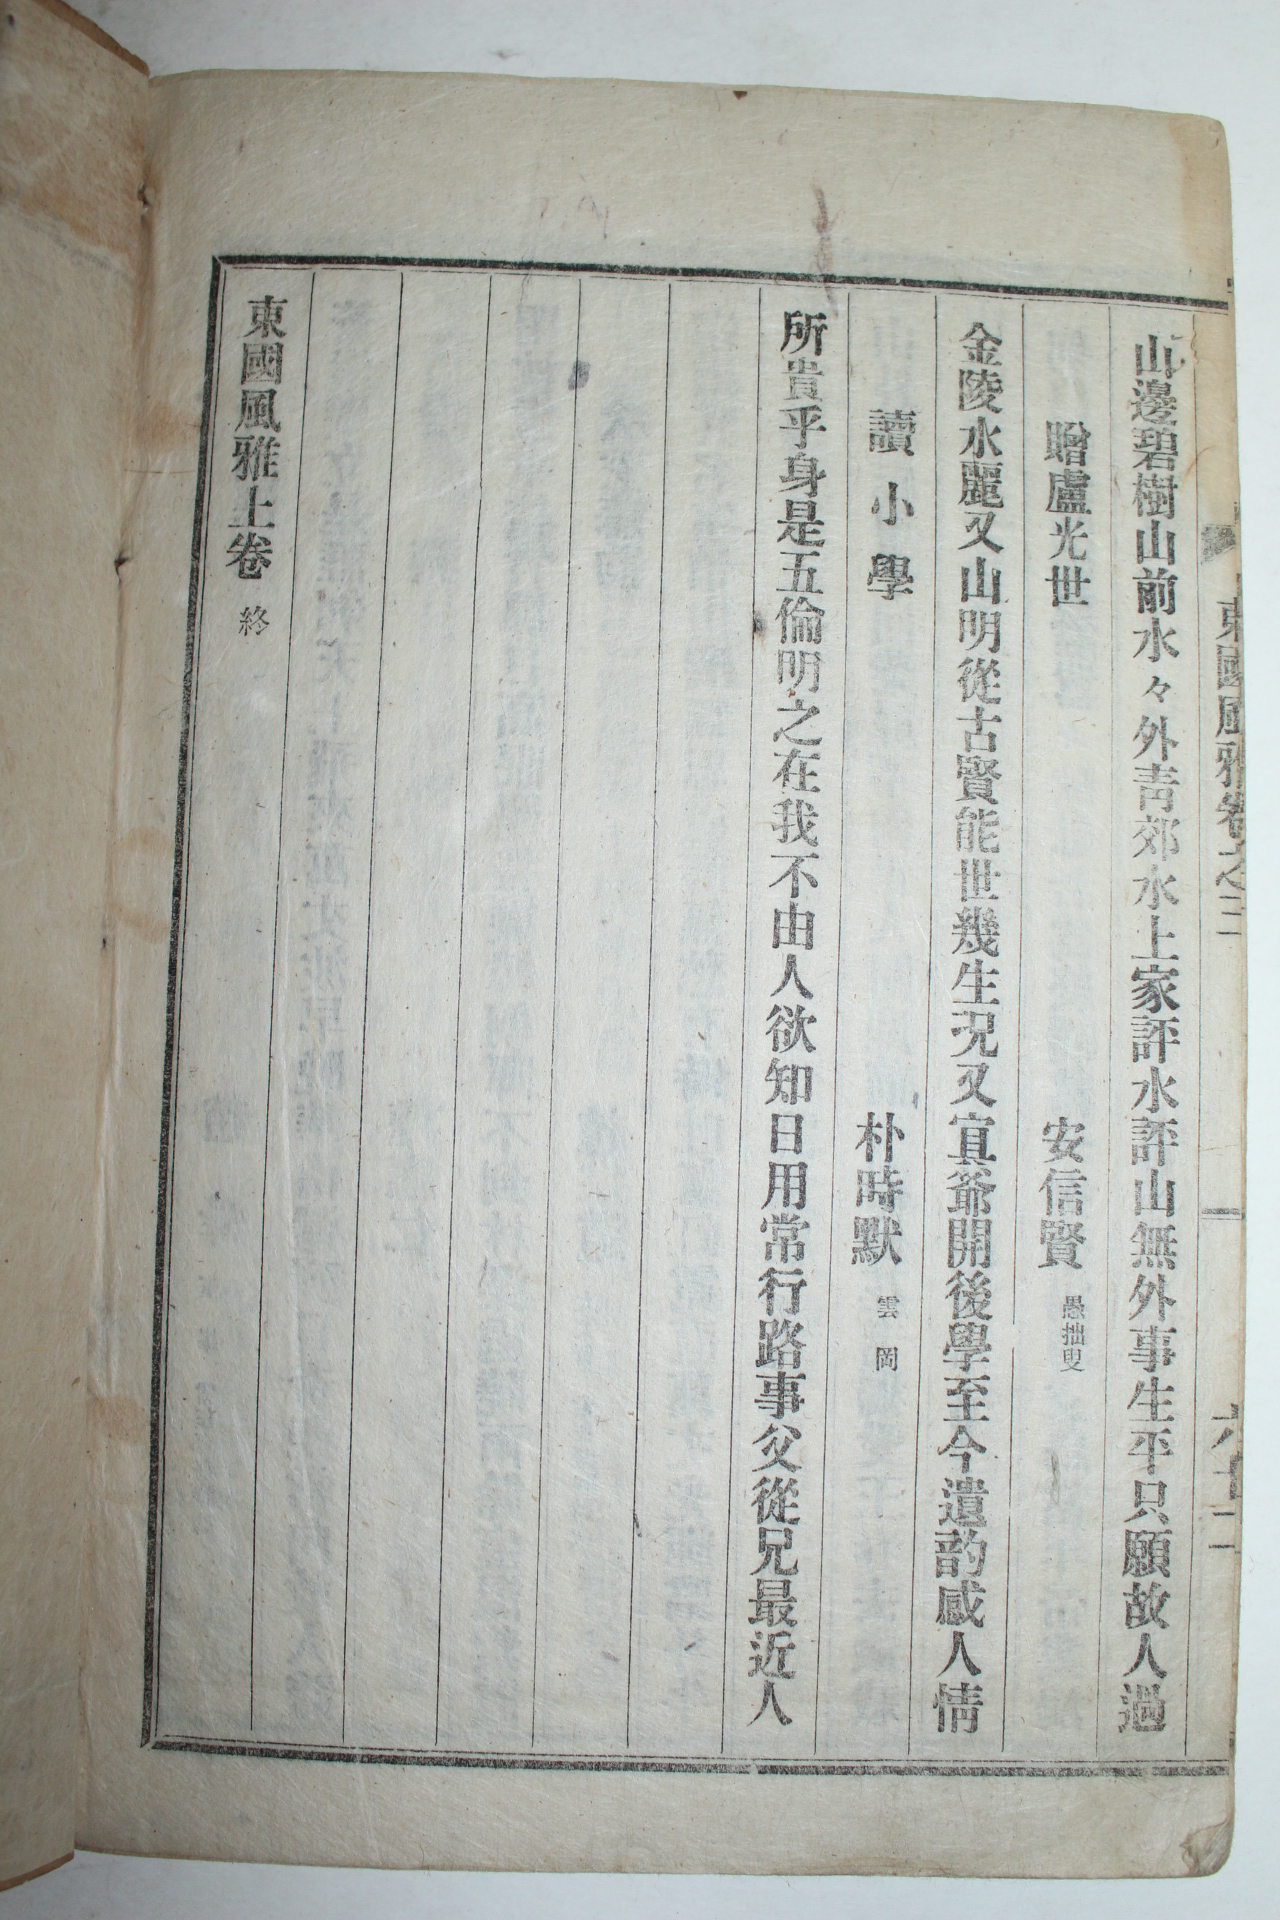 東國風雅卷之二
六十二
山邊碧樹山前水々外靑郊水上家評水評山無外事生平只願故人過
贈盧光世
安信賢 愚拙叟
金陵水麗又山明從古賢能世幾生況又宜爺開後學至今遺韵感人情
讀小學
朴時默 雲岡
所貴乎身是五倫明之在我不由人欲知日用常行路事父從兄最近人
東國風雅上卷 終